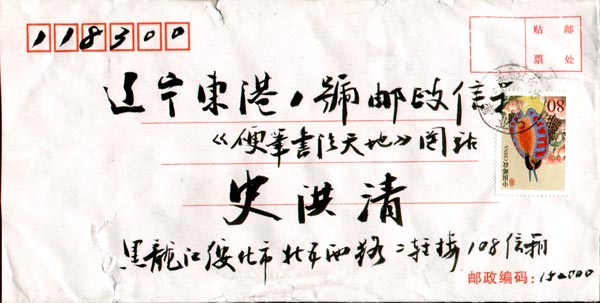 118300
贴 邮
票 处
辽宁東港1號邮政信箱
《硬筆書法天地》网站
史洪清
80
中国邮政
CHINA
黑龍江绥化市北四西路二轻楼108信箱
邮政编码:152000